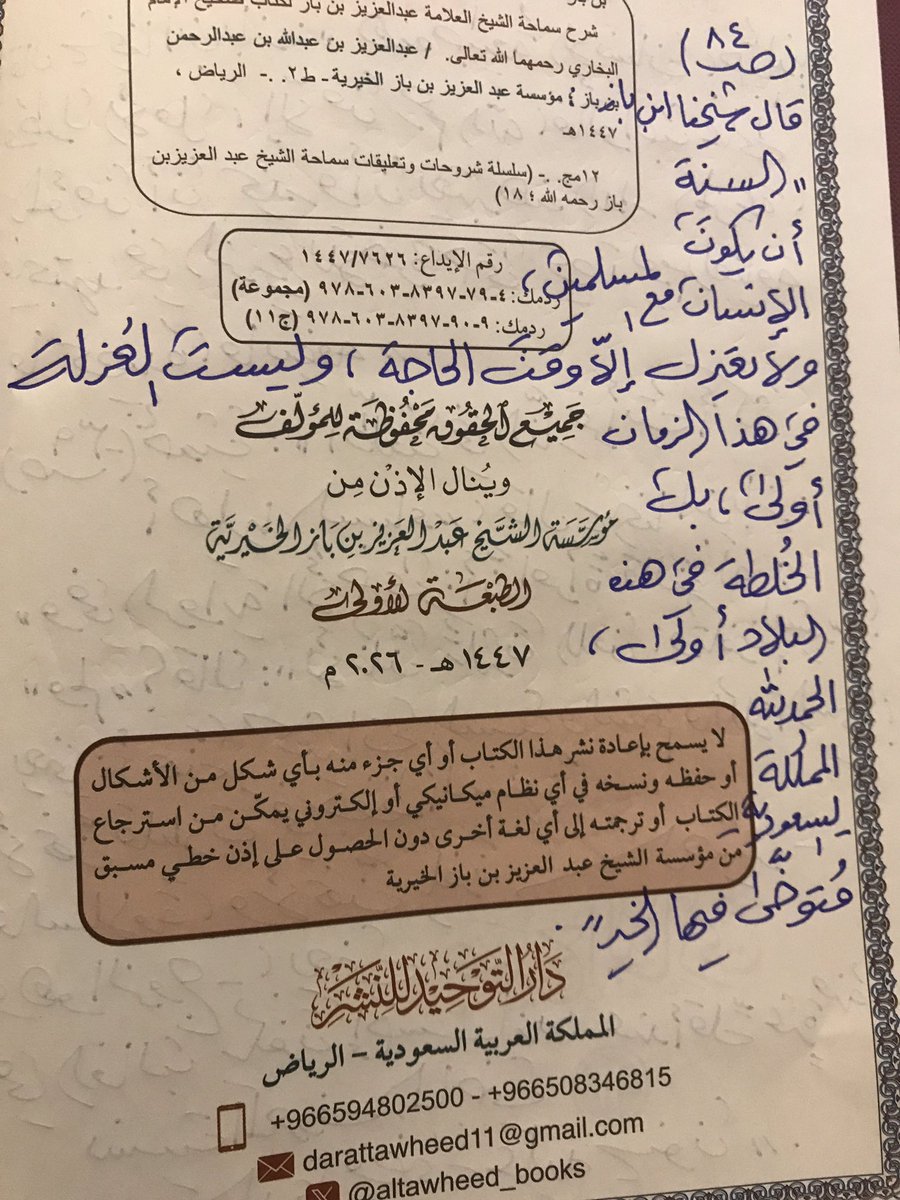 شرح سماحة الشيخ العلامة عبدالعزيز بن باز لكتاب صحيح الإمام
البخاري رحمهما الله تعالى. / عبدالعزيز بن عبدالله بن عبدالرحمن
بن باز ؛ مؤسسة عبد العزيز بن باز الخيرية - ط٢. .- الرياض ،
١٤٤٧هـ
١٢مج. .- (سلسلة شروحات وتعليقات سماحة الشيخ عبد العزيز بن
باز رحمه الله ؛ ١٨)
رقم الإيداع: ١٤٤٧/٧٦٢٦
ردمك: ٤-٧٩-٨٣٩٧-٦٠٣-٩٧٨ (مجموعة)
ردمك: ٩-٩٠-٨٣٩٧-٦٠٣-٩٧٨ (ج١١)
(صـ ٨٤)
قال شيخنا ابن باز
"السنة
أن يكون
الإنسان مع المسلمين،
ولا يعتزل إلّا وقت الحاجة، وليست العُزلة
في هذا الزمان
أولى، بل
الخُلطة في هذه
البلاد أولى،
الحمد لله
المملكة
السعودية
مُتوخَّى فيها الخير".
جَمِيعُ الحُقُوقِ مَحْفُوظَة لِلمُؤَلِّف
ويُنال الإذْن مِن
مُؤَسَّسَة الشَّيْخ عَبْد العَزيز بن بَاز الخَيْرِيَّة
الطَّبْعَة الأُولى
١٤٤٧ هـ - ٢٠٢٦ م
لا يسمح بإعادة نشر هذا الكتاب أو أي جزء منه بأي شكل من الأشكال
أو حفظه ونسخه في أي نظام ميكانيكي أو إلكتروني يمكّن من استرجاع
الكتاب أو ترجمته إلى أي لغة أخرى دون الحصول على إذن خطي مسبق
من مؤسسة الشيخ عبد العزيز بن باز الخيرية
دَارُ التَّوْحِيد لِلنَّشْر
المملكة العربية السعودية - الرياض
+966594802500 - +966508346815
darattawheed11@gmail.com
@altawheed_books